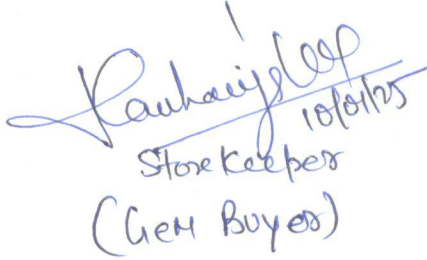 10/01/25
StoreKeeper
(Gem Buyer)